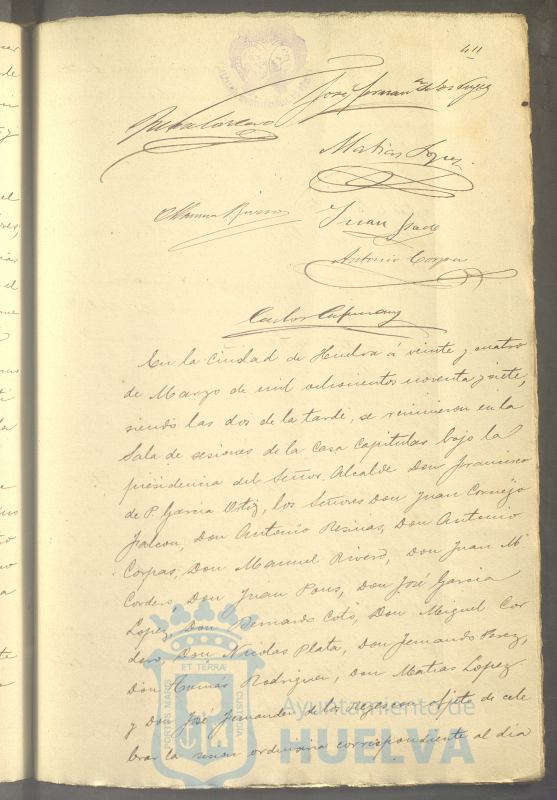 411
José Fernan^z de los Reyes
Matias Lopez
Manuel Rivero
Juan
Antonio Corpas
Carlos
En la Ciudad de Huelva á veinte y cuatro
de Marzo de mil ochocientos noventa y siete,
siendo las dos de la tarde, se reunieron en la
Sala de sesiones de la casa Capitular bajo la
presidencia del Señor Alcalde Don Francisco
de P. Garcia Ortiz, los Señores Don Juan Cornejo
Falcon, Don Antonio Resinas, Don Antonio
Corpas, Don Manuel Rivero, Don Juan M.
Cordero, Don Juan Pons, Don José Garcia
Lopez, Don Bernardo Cotö, Don Miguel Cor
dero, Don Nicolas Plata, Don Fernando Perez,
Don Tomás Rodriguez, Don Matias Lopez
y Don José Fernandez de los Reyes con objeto de cele
brar la sesion ordinaria correspondiente al dia
PORTUS MARIS ET TERRÆ CUSTODIA
Ayuntamiento de
HUELVA